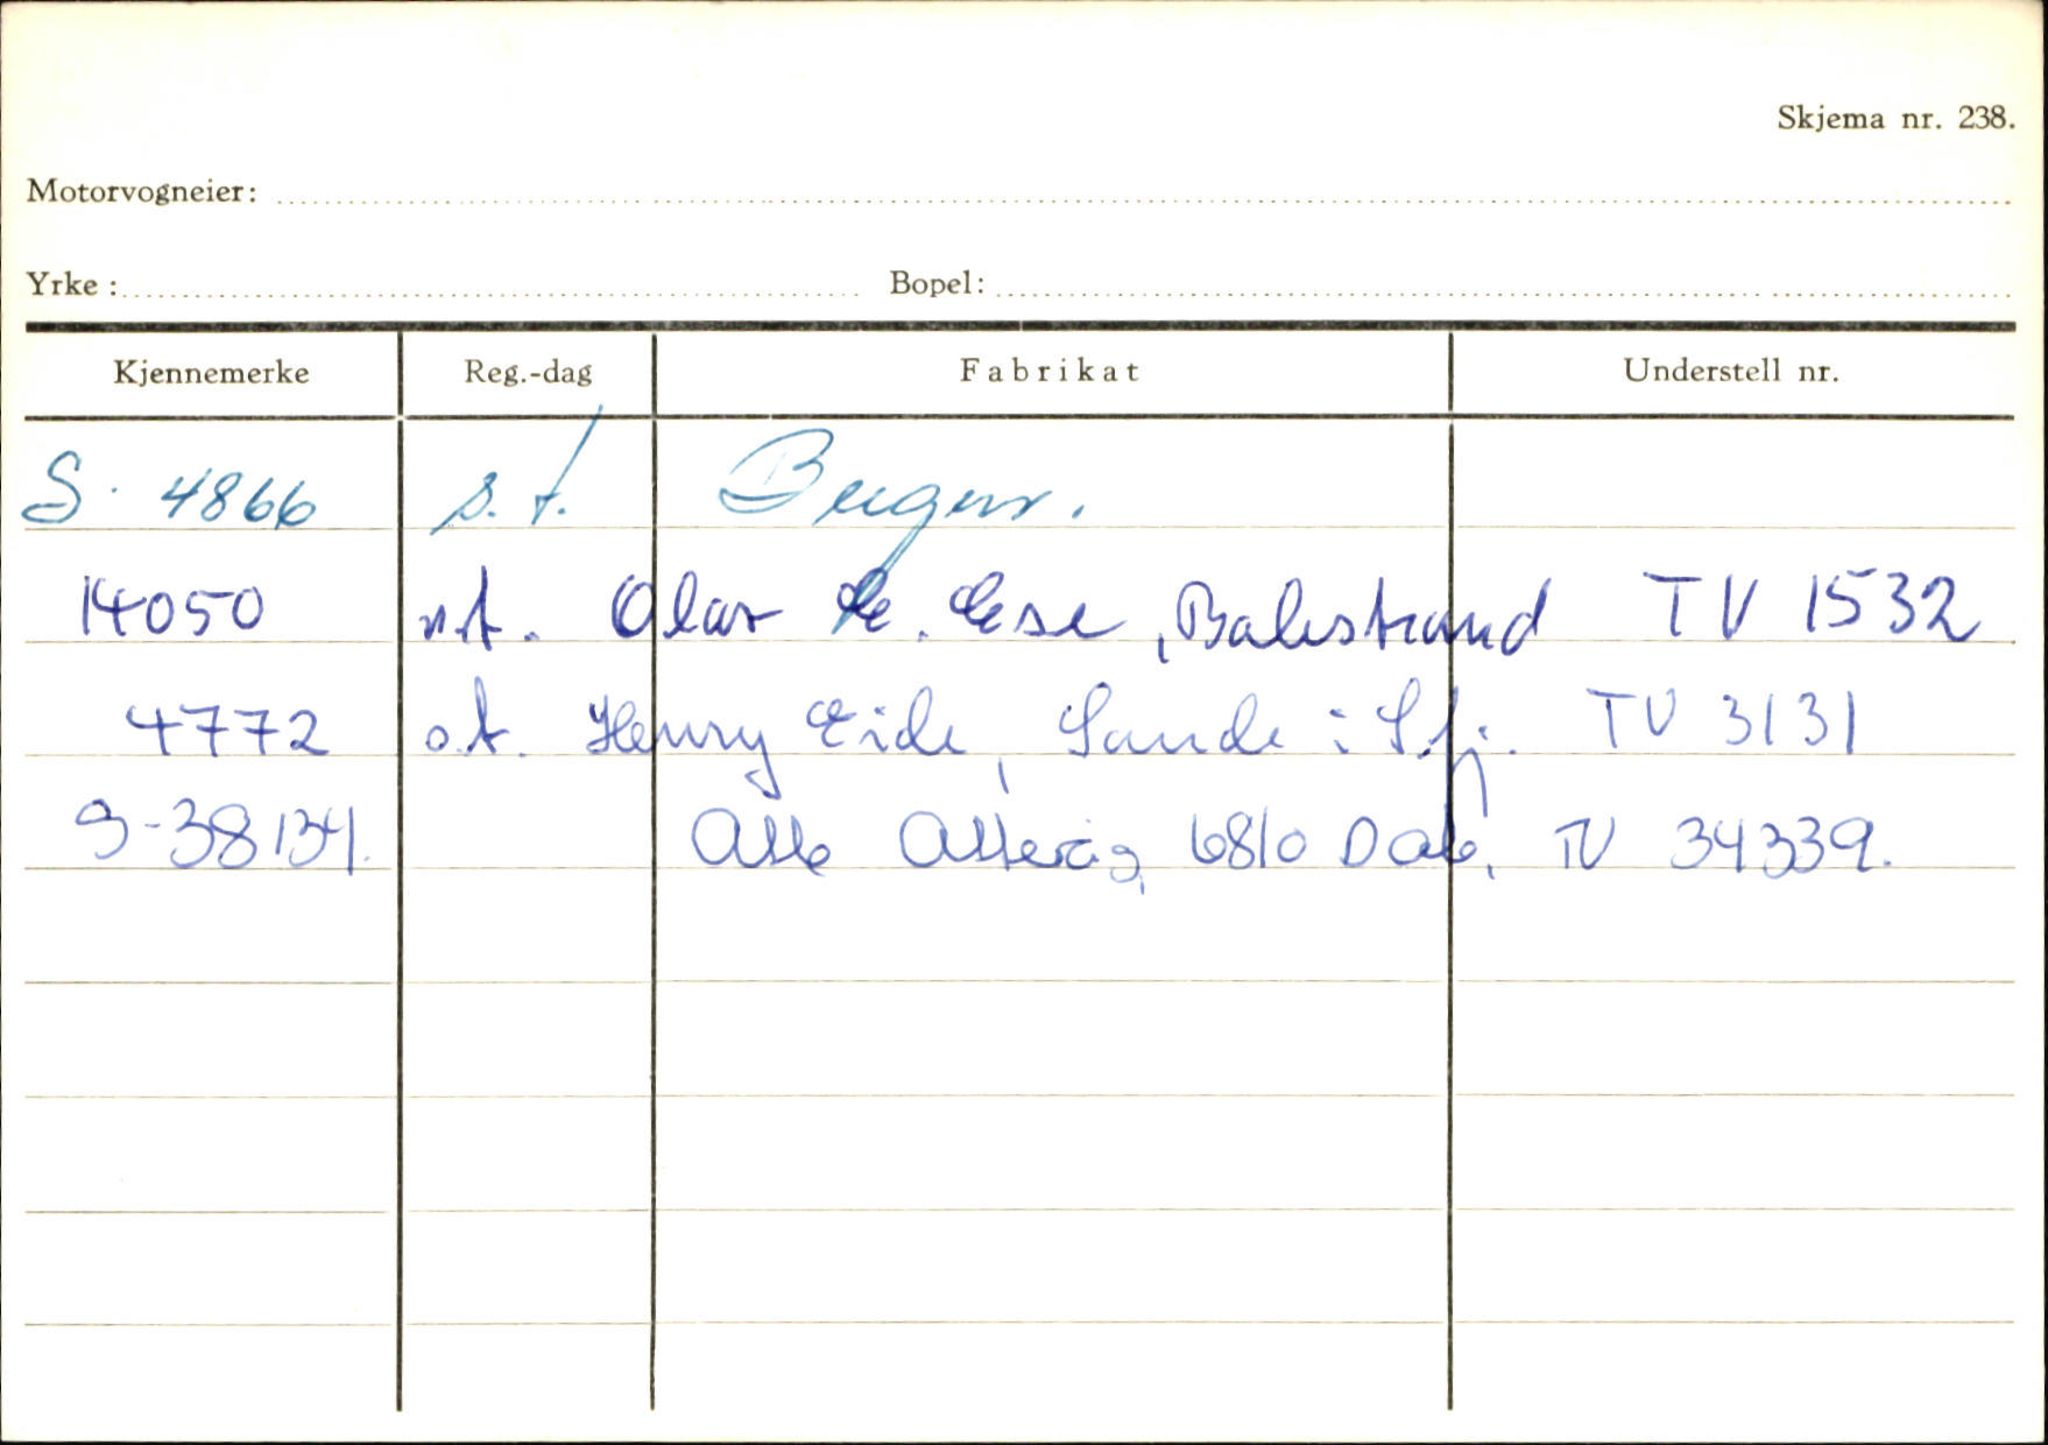 Skjema nr. 238.
Motorvogneier:
Yrke : Bopel:
Kjennemerke Reg.-dag Fabrikat Understell nr.
S. 4866 s.t.
14050 n.t. Olav E. Ese, Balestrand TV 1532
4772 o.t. Henry Eide, Sande i S.fj. TV 3131
S-38134. Atle 6810 Dale, TV 34339.